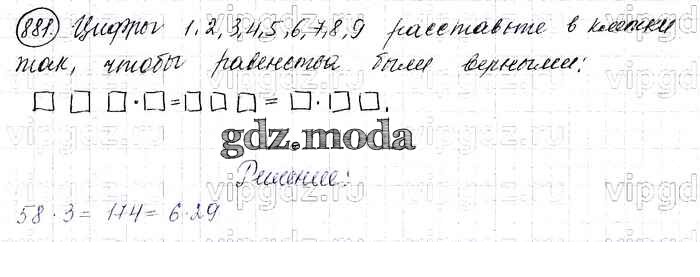 881. Цифры 1,2,3,4,5,6,7,8,9 расставьте в клетки
так, чтобы равенства были верными:
□ □ □ · □ = □ □ □ = □ · □ □.
gdz.moda
Решение:
58 · 3 = 174 = 6 · 29
vipgdz.ru